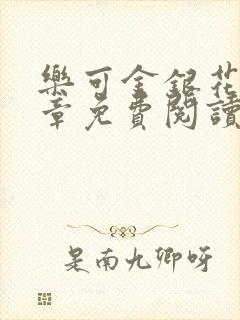 樂可金銀花
章免費閱讀
是南九卿呀